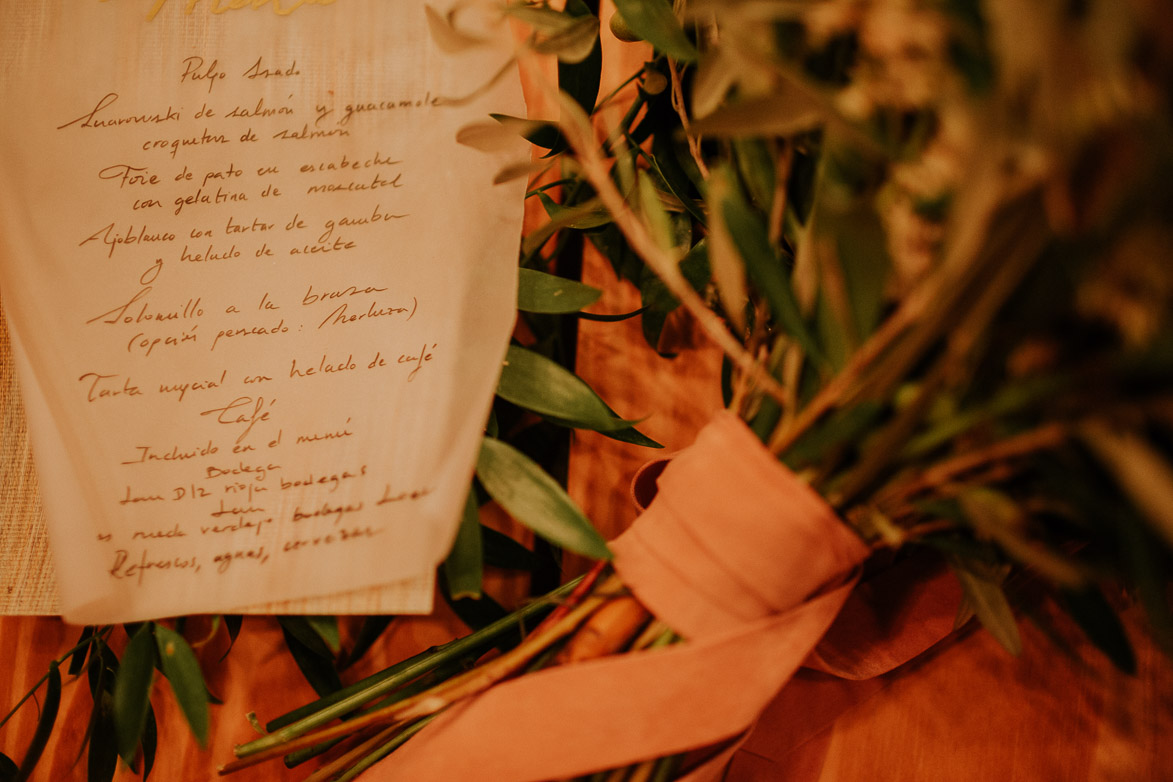 Menú
Pulpo Asado
Swarowski de salmón y guacamole
croquetas de salmón
Foie de pato en escabeche
con gelatina de moscatel
Ajoblanco con tartar de gambas
y helado de aceite
Solomillo a la brasa
(opción pescado: Merluza)
Tarta nupcial con helado de café
Café
Incluido en el menú
Bodega
Luis rioja bodegas
rueda verdejo bodegas
Refrescos, aguas, cervezas